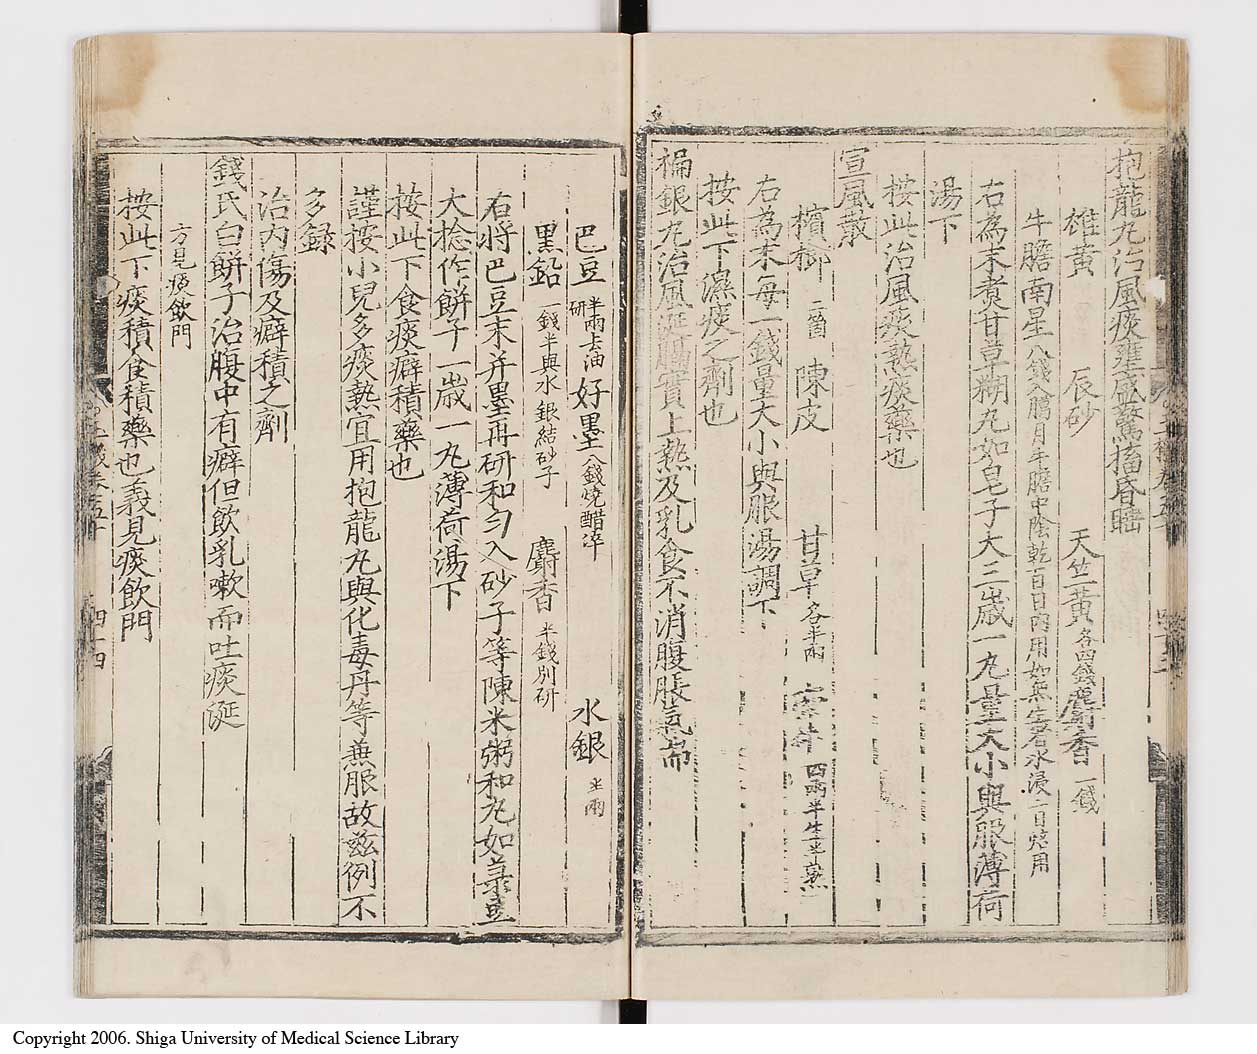 抱龍丸治風痰壅盛驚搐昏睡
雄黃 辰砂 天竺黃各四錢 麝香一錢
牛膽南星八錢臘月牛膽中陰乾百日內用如無生者水浸二日焙用
右為末煮甘草糊丸如皂子大三歲一丸量大小與服薄荷
湯下
按此治風痰熱痰藥也
宣風散
檳榔二箇 陳皮 甘草各半兩 牽牛四兩半生半熟
右為末每一錢量大小與服湯調下
按此下濕痰之劑也
褊銀丸治風涎膈實上熱及乳食不消腹脹氣喘
巴豆半兩去油研 好墨八錢燒醋淬 水銀半兩
黑鉛一錢半與水銀結砂子 麝香半錢別研
右將巴豆末并墨再研和勻入砂子等陳米粥和丸如菉豆
大捻作餅子一歲一丸薄荷湯下
按此下食痰癖積藥也
謹按小兒多痰熱宜用抱龍丸與化毒丹等兼服故茲例不
多錄
治內傷及癖積之劑
錢氏白餅子治腹中有癖但飲乳嗽而吐痰涎
方見痰飲門
按此下痰積食積藥也義見痰飲門
四十四
Copyright 2006. Shiga University of Medical Science Library